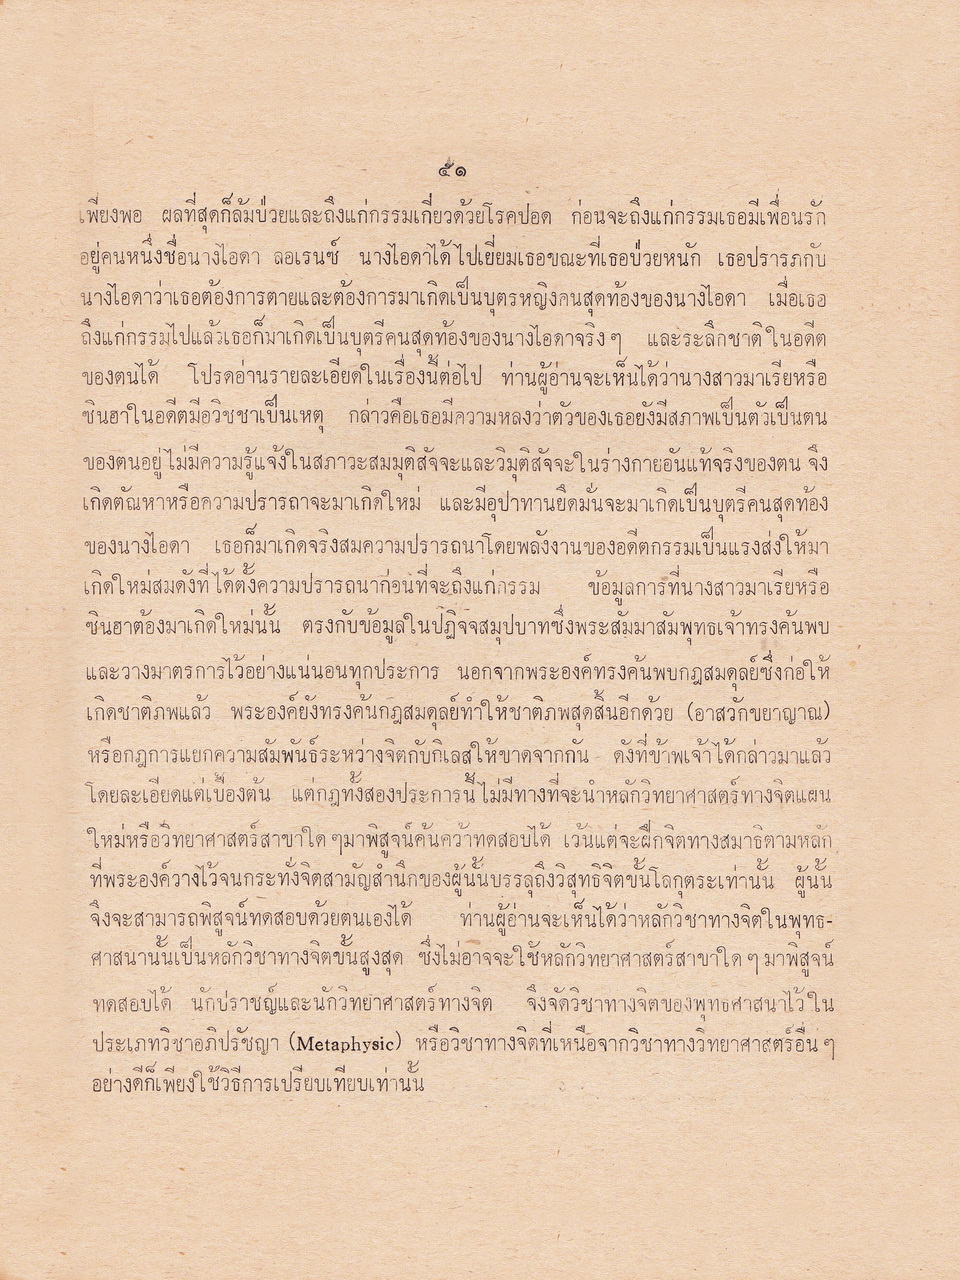 ๕๑
เพียงพอ ผลที่สุดก็ล้มป่วยและถึงแก่กรรมเกี่ยวด้วยโรคปอด ก่อนจะถึงแก่กรรมเธอมีเพื่อนรัก
อยู่คนหนึ่งชื่อนางไอดา ลอเรนซ์ นางไอดาได้ไปเยี่ยมเธอขณะที่เธอป่วยหนัก เธอปรารภกับ
นางไอดาว่าเธอต้องการตายและต้องการมาเกิดเป็นบุตรหญิงคนสุดท้องของนางไอดา เมื่อเธอ
ถึงแก่กรรมไปแล้วเธอก็มาเกิดเป็นบุตรีคนสุดท้องของนางไอดาจริง ๆ และระลึกชาติในอดีต
ของตนได้ โปรดอ่านรายละเอียดในเรื่องนี้ต่อไป ท่านผู้อ่านจะเห็นได้ว่านางสาวมาเรียหรือ
ซินฮาในอดีตมีอวิชชาเป็นเหตุ กล่าวคือเธอมีความหลงว่าตัวของเธอยังมีสภาพเป็นตัวเป็นตน
ของตนอยู่ ไม่มีความรู้แจ้งในสภาวะสมมุติสัจจะและวิมุติสัจจะในร่างกายอันแท้จริงของตน จึง
เกิดตัณหาหรือความปรารถาจะมาเกิดใหม่ และมีอุปาทานยึดมั่นจะมาเกิดเป็นบุตรีคนสุดท้อง
ของนางไอดา เธอก็มาเกิดจริงสมความปรารถนาโดยพลังงานของอดีตกรรมเป็นแรงส่งให้มา
เกิดใหม่สมดังที่ได้ตั้งความปรารถนาก่อนที่จะถึงแก่กรรม ข้อมูลการที่นางสาวมาเรียหรือ
ซินฮาต้องมาเกิดใหม่นั้น ตรงกับข้อมูลในปฏิจจสมุปบาทซึ่งพระสัมมาสัมพุทธเจ้าทรงค้นพบ
และวางมาตรการไว้อย่างแน่นอนทุกประการ นอกจากพระองค์ทรงค้นพบกฎสมดุลย์ซึ่งก่อให้
เกิดชาติภพแล้ว พระองค์ยังทรงค้นกฎสมดุลย์ทำให้ชาติภพสุดสิ้นอีกด้วย (อาสวักขยาญาณ)
หรือกฎการแยกความสัมพันธ์ระหว่างจิตกับกิเลสให้ขาดจากกัน ดังที่ข้าพเจ้าได้กล่าวมาแล้ว
โดยละเอียดแต่เบื้องต้น แต่กฎทั้งสองประการนี้ไม่มีทางที่จะนำหลักวิทยาศาสตร์ทางจิตแผน
ใหม่หรือวิทยาศาสตร์สาขาใด ๆมาพิสูจน์ค้นคว้าทดสอบได้ เว้นแต่จะฝึกจิตทางสมาธิตามหลัก
ที่พระองค์วางไว้จนกระทั่งจิตสามัญสำนึกของผู้นั้นบรรลุถึงวิสุทธิจิตขั้นโลกุตระเท่านั้น ผู้นั้น
จึงจะสามารถพิสูจน์ทดสอบด้วยตนเองได้ ท่านผู้อ่านจะเห็นได้ว่าหลักวิชาทางจิตในพุทธ-
ศาสนานั้นเป็นหลักวิชาทางจิตขั้นสูงสุด ซึ่งไม่อาจจะใช้หลักวิทยาศาสตร์สาขาใด ๆ มาพิสูจน์
ทดสอบได้ นักปราชญ์และนักวิทยาศาสตร์ทางจิต จึงจัดวิชาทางจิตของพุทธศาสนาไว้ใน
ประเภทวิชาอภิปรัชญา (Metaphysic) หรือวิชาทางจิตที่เหนือจากวิชาทางวิทยาศาสตร์อื่น ๆ
อย่างดีก็เพียงใช้วิธีการเปรียบเทียบเท่านั้น